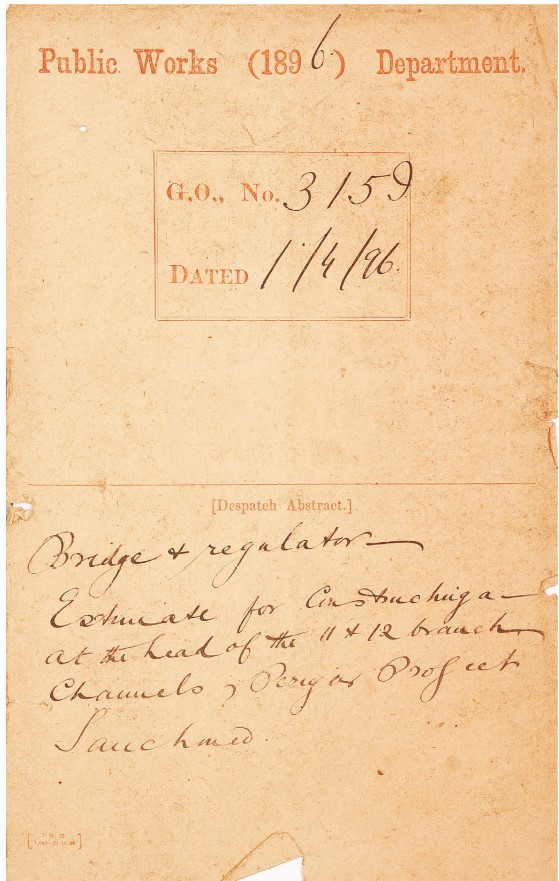 Public Works (1896) Department.
G.O., No. 315 I
DATED 1/4/96.
[Despatch Abstract.]
Bridge & regulator—
Estimate for Constructing a—
at the head of the 11 & 12 branch
Channels, Periyar Project
Sanctioned